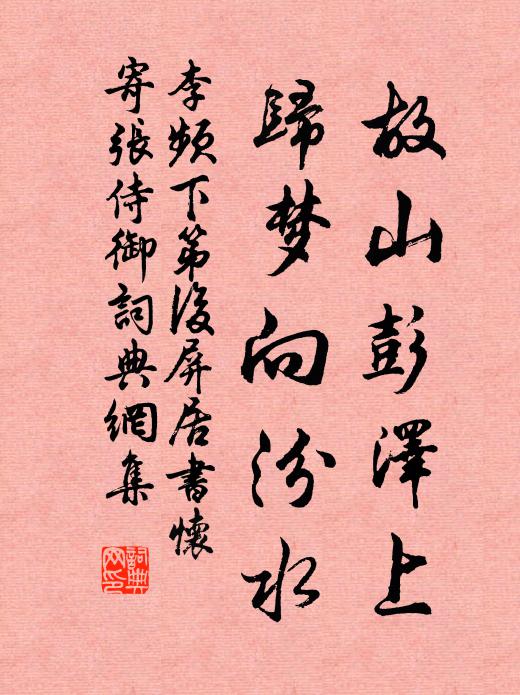 故山彭澤上
歸梦向汾水
李頻下第後屏居書懷
寄張侍御詞典網集
詞典
网印